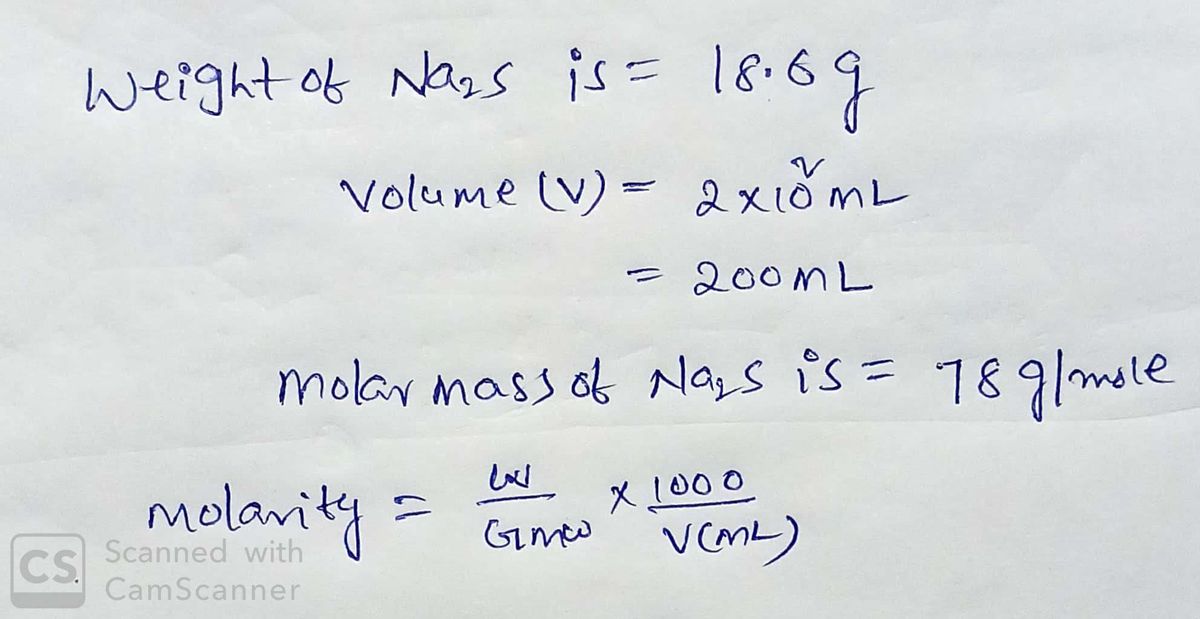 Weight of Na₂S is = 18.6 g
Volume (V) = 2 x 10² mL
= 200 mL
molar mass of Na₂S is = 78 g/mole
molarity = W/GMW x 1000/V(mL)
CS Scanned with
CamScanner